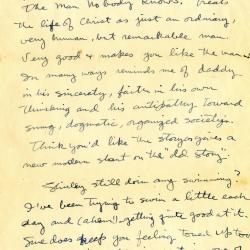 The Man Nobody Knows. Treats
the life of Christ as just an ordinary,
very human, but remarkable man.
Very good & makes you like the man.
In many ways reminds me of daddy
in his sincerity, faith in his own
thinking and his antipathy toward
smug, dogmatic, organized society.
Think you'd like the story gives a
new modern slant on the "old story".
Shirley still doin' any swimming?
I've been trying to swim a little each
day and (ahem!) getting quite good at it.
Sure does keep you feeling touch up too